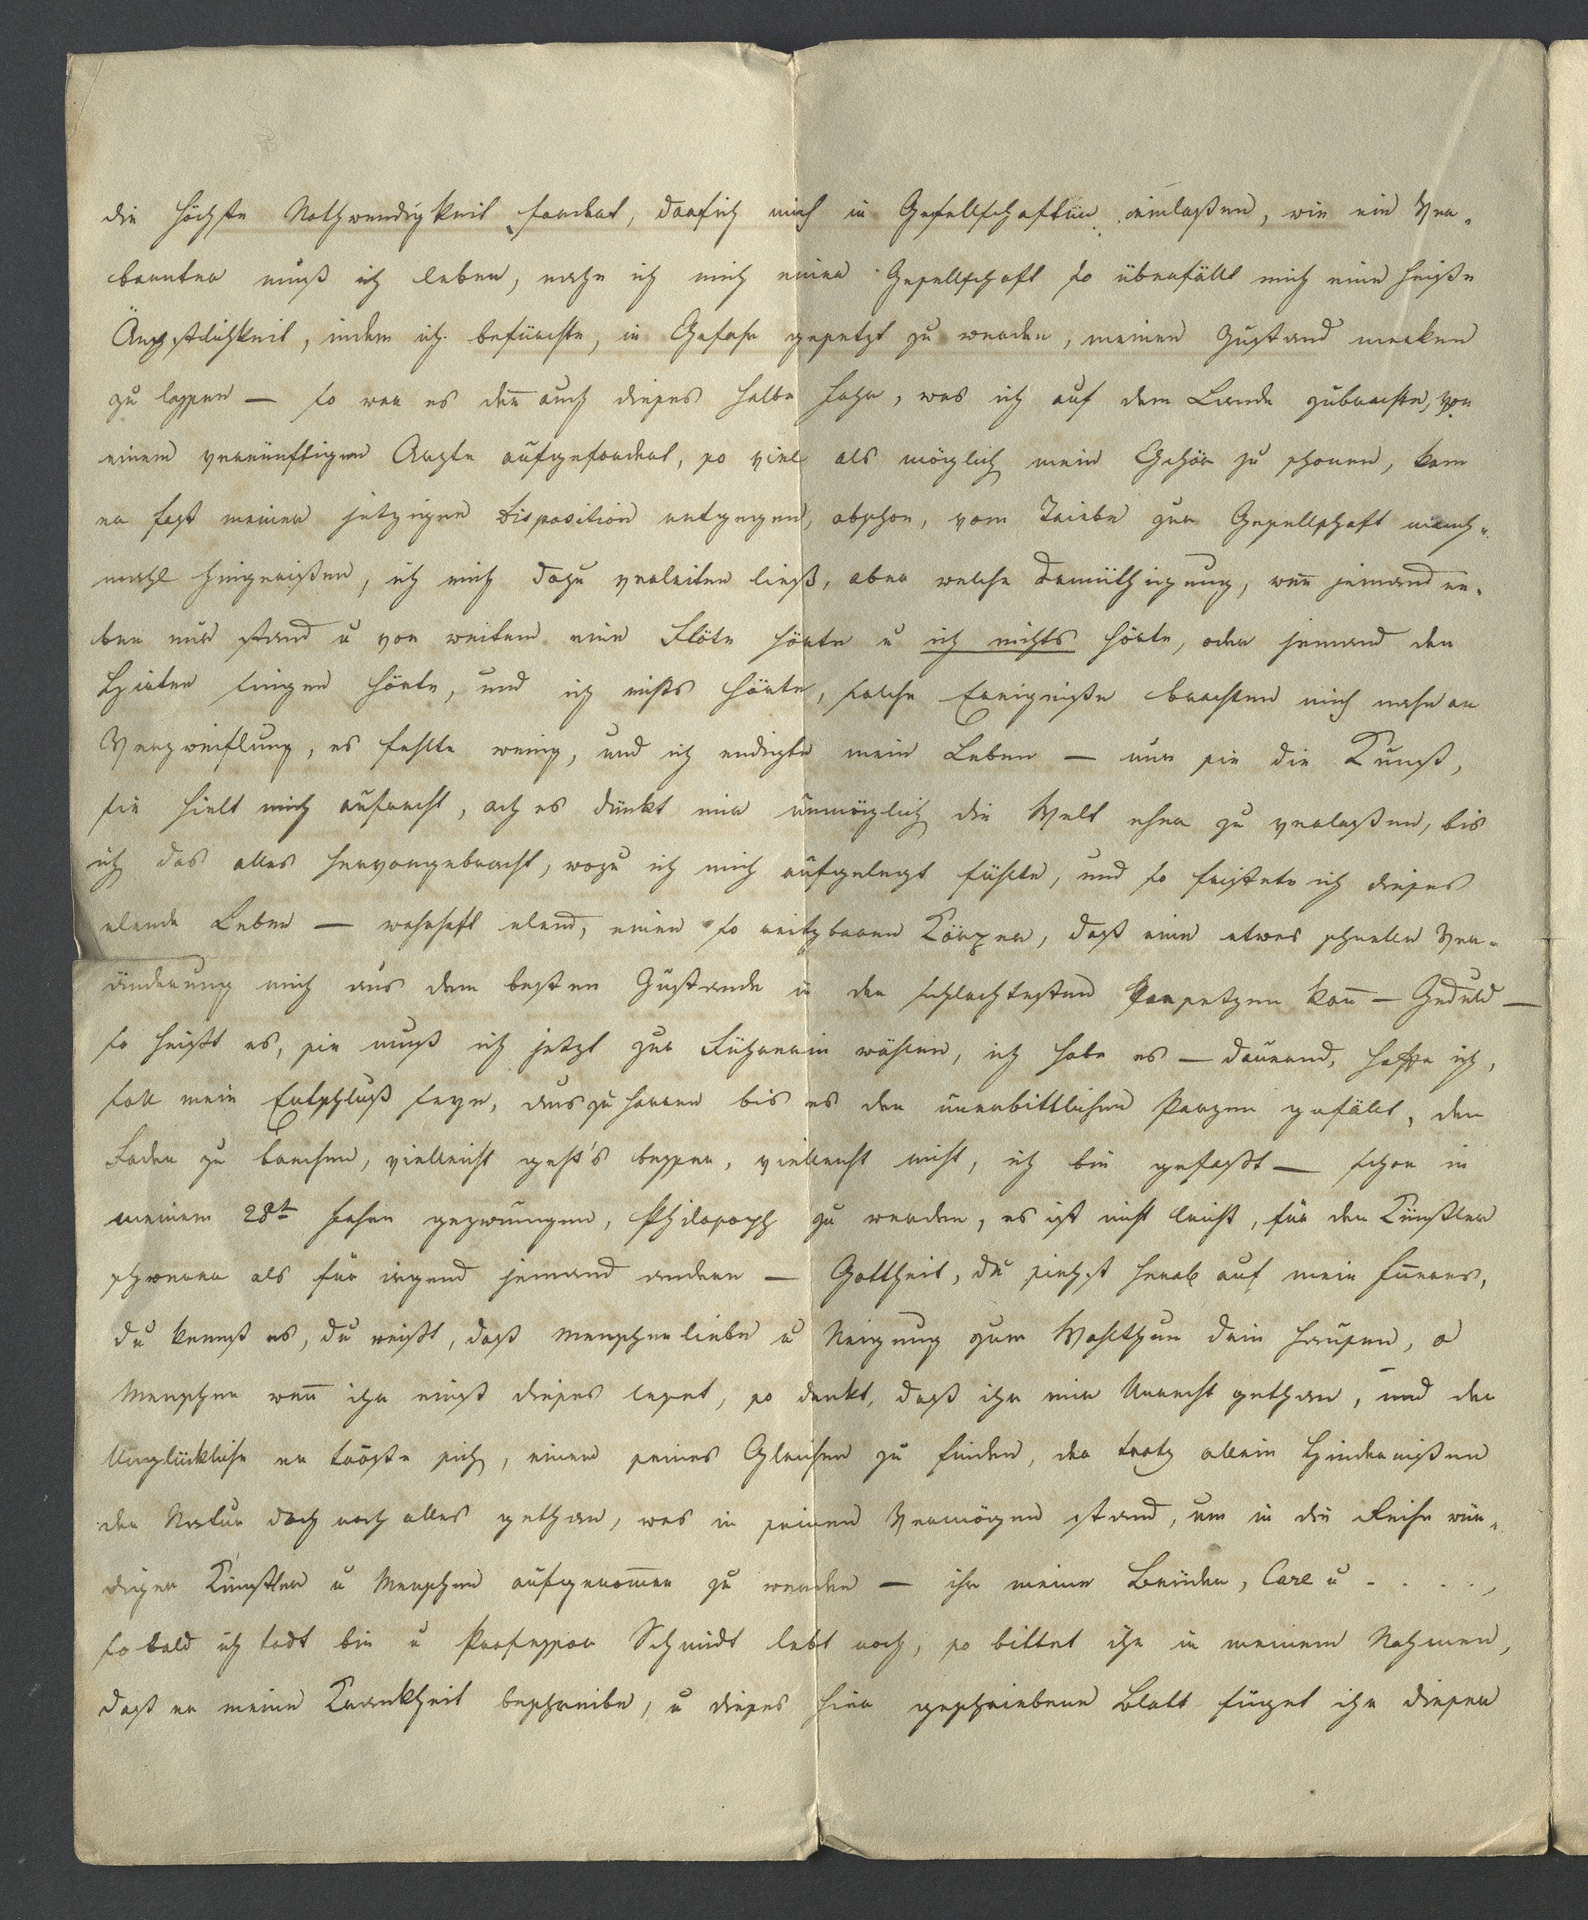 die höchste Nothwendigkeit fordert, darf ich mich in Gesellschaft einlaßen, wie ein Ver-
bannter muß ich leben, nahe ich mich einer Gesellschaft so überfällt mich eine heiße
Ängstlichkeit, indem ich befürchte, in Gefahr gesetzt zu werden, meinen Zustand merken
zu lassen — so war es deñ auch dieses halbe Jahr, was ich auf dem Lande zubrachte, von
einem vernünftigen Arzte aufgefordert, so viel als möglich mein Gehör zu schonen, kam
er fast meiner jetzigen Disposition entgegen, obschon, vom Triebe zur Gesellschaft manch-
mahl hingerißen, ich mich dazu verleiten ließ, aber welche Demüthigung, weñ jemand ne-
ben mir stand u von weitem eine Flöte hörte u ich nichts hörte, oder jemand den
Hirten singen hörte, und ich nichts hörte, solche Ereigniße brachten mich nahe an
Verzweiflung, es fehlte wenig, und ich endigte mein Leben — nur sie die Kunst,
sie hielt mich aufrecht, ach es dünkt mir unmöglich die Welt eher zu verlaßen, bis
ich das alles hervorgebracht, wozu ich mich aufgelegt fühlte, und so fristete ich dieses
elende Leben — wahrhaft elend, einen so reitzbaren Körper, daß eine etwas schnelle Ver-
änderung mich aus dem besten Zustande in den schlechtesten versetzen kañ — Geduld —
so heißt es, sie muß ich jetzt zur Führerin wählen, ich habe es — daurend, hoffe ich,
soll mein Entschluß seyn, auszuharren bis es den unerbittlichen Parzen gefällt, den
Faden zu brechen, vielleicht geht's besser, vielleicht nicht, ich bin gefaßt — schon in
meinem 28ten Jahre gezwungen, Philosoph zu werden, es ist nicht leicht, für den Künstler
schwerer als für irgend jemand andern — Gottheit, du siehst herab auf mein Iñeres,
du kennst es, du weißt, daß menschenliebe u Neigung zum Wohlthun drin hausen, o
Menschen weñ ihr einst dieses leset, so denkt, daß ihr mir Unrecht gethan, und der
Unglückliche er tröste sich, einen seines Gleichen zu finden, der trotz allen Hindernißen
der Natur doch noch alles gethan, was in seinem Vermögen stand, um in die Reihe wür-
diger Künstler u Menschen aufgenom̄en zu werden — ihr meine Brüder, Carl u . . . . ,
so bald ich todt bin u Professor Schmidt lebt noch, so bittet ihn in meinem Nahmen,
daß er meine Krankheit beschreibe, u dieses hier geschriebene Blatt füget ihr dieser